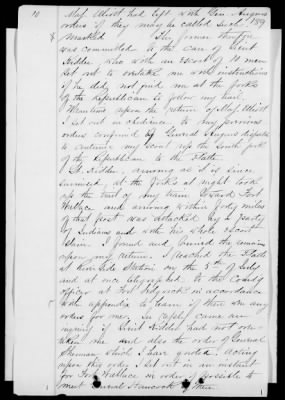 10
Maj. Elliott had left with Gen. Augur
orders if they may be called such.
marked
was committed to the care of Lieut
Kidder, who with an escort of 10 men
set out to overtake me with instructions
if he did not find me at the forks
of the Republican to follow my trail.
Meantime upon the return of Maj Elliott
I set out in obedience to my previous
orders confirmed by General Augurs dispatch
to continue my scout up the South fork
of the Republican to the Platte.
Lt. Kidder, arriving as it is since
surmised, at the forks at night took
up the trail of my train toward Fort
Wallace and arriving within forty miles
of that post was attacked by a party
of Indians and with his whole escort
slain. I found and buried the remains
upon my return. I reached the Platte
at Riverside Station on the 5th of July
and at once telegraphed to the Comdg
officer at Fort Sedgwick in accordance
with appendix to learn if there were any
orders for me. In reply came an
inquiry if Lieut Kidder had not over-
taken me and also the order of General
Sherman which I have quoted. Acting
upon this order I set out in an instant
for Fort Wallace in order if possible to
meet General Hancock there